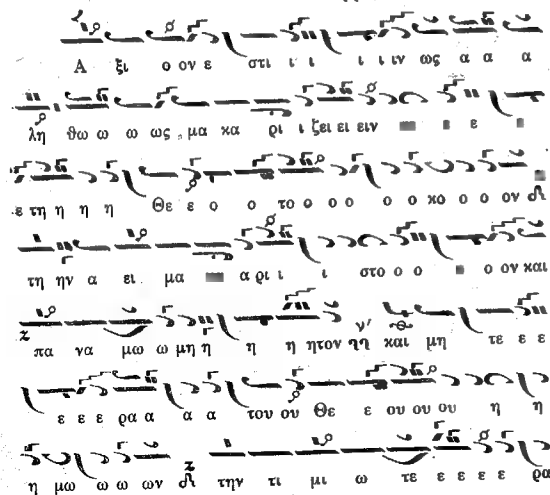 Α ξι ο ον ε στι ι ι ι ι ιν ως α α α
λη θω ω ω ως μα κα ρι ι ζει ει ειν ε
ε τη η η η Θε ε ο ο το ο ο ο ο ο κο ο ο ον
τη ην α ει μα α ρι ι ι στο ο ο ο ον και
πα να μω ω μη η η η ητον και μη τε ε ε
ε ε ε ρα α α α του ου Θε ε ου ου ου η η
η μω ω ω ων την τι μι ω τε ε ε ε ε ρα